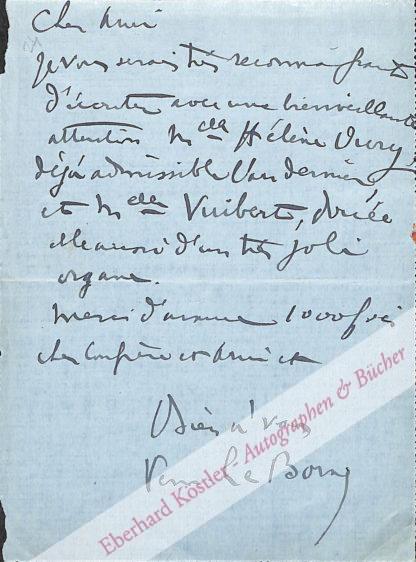 Cher Ami
Je vous serais très reconnaissant
d'écouter avec une bienveillante
attention Melle Hélène Dury
déjà admissible l'an dernier
et Melle Vuibert, douée
elle aussi d'un très joli
organe.
Merci d'avance 1000 fois
cher Confrère et Ami et
Bien à vous
Le Borne
Eberhard Köstler - Autographen & Bücher